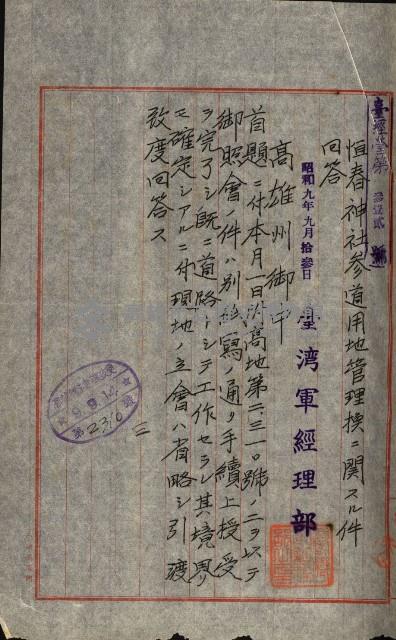 臺經營第 參壹貳 號
恒春神社參道用地管理換ニ関スル件
回答
昭和九年九月拾參日
臺湾軍經理部
高雄州御中
首題ニ付本月一日附高地第二三一〇號ノ二ヲ以テ
御照會ノ件ハ別紙寫ノ通リ手續上授受
ヲ完了シ既ニ道路トシテ工作セラレ其境界
モ確定シアルニ付現地ノ立會ハ省略シ引渡
致度回答ス
第2310號